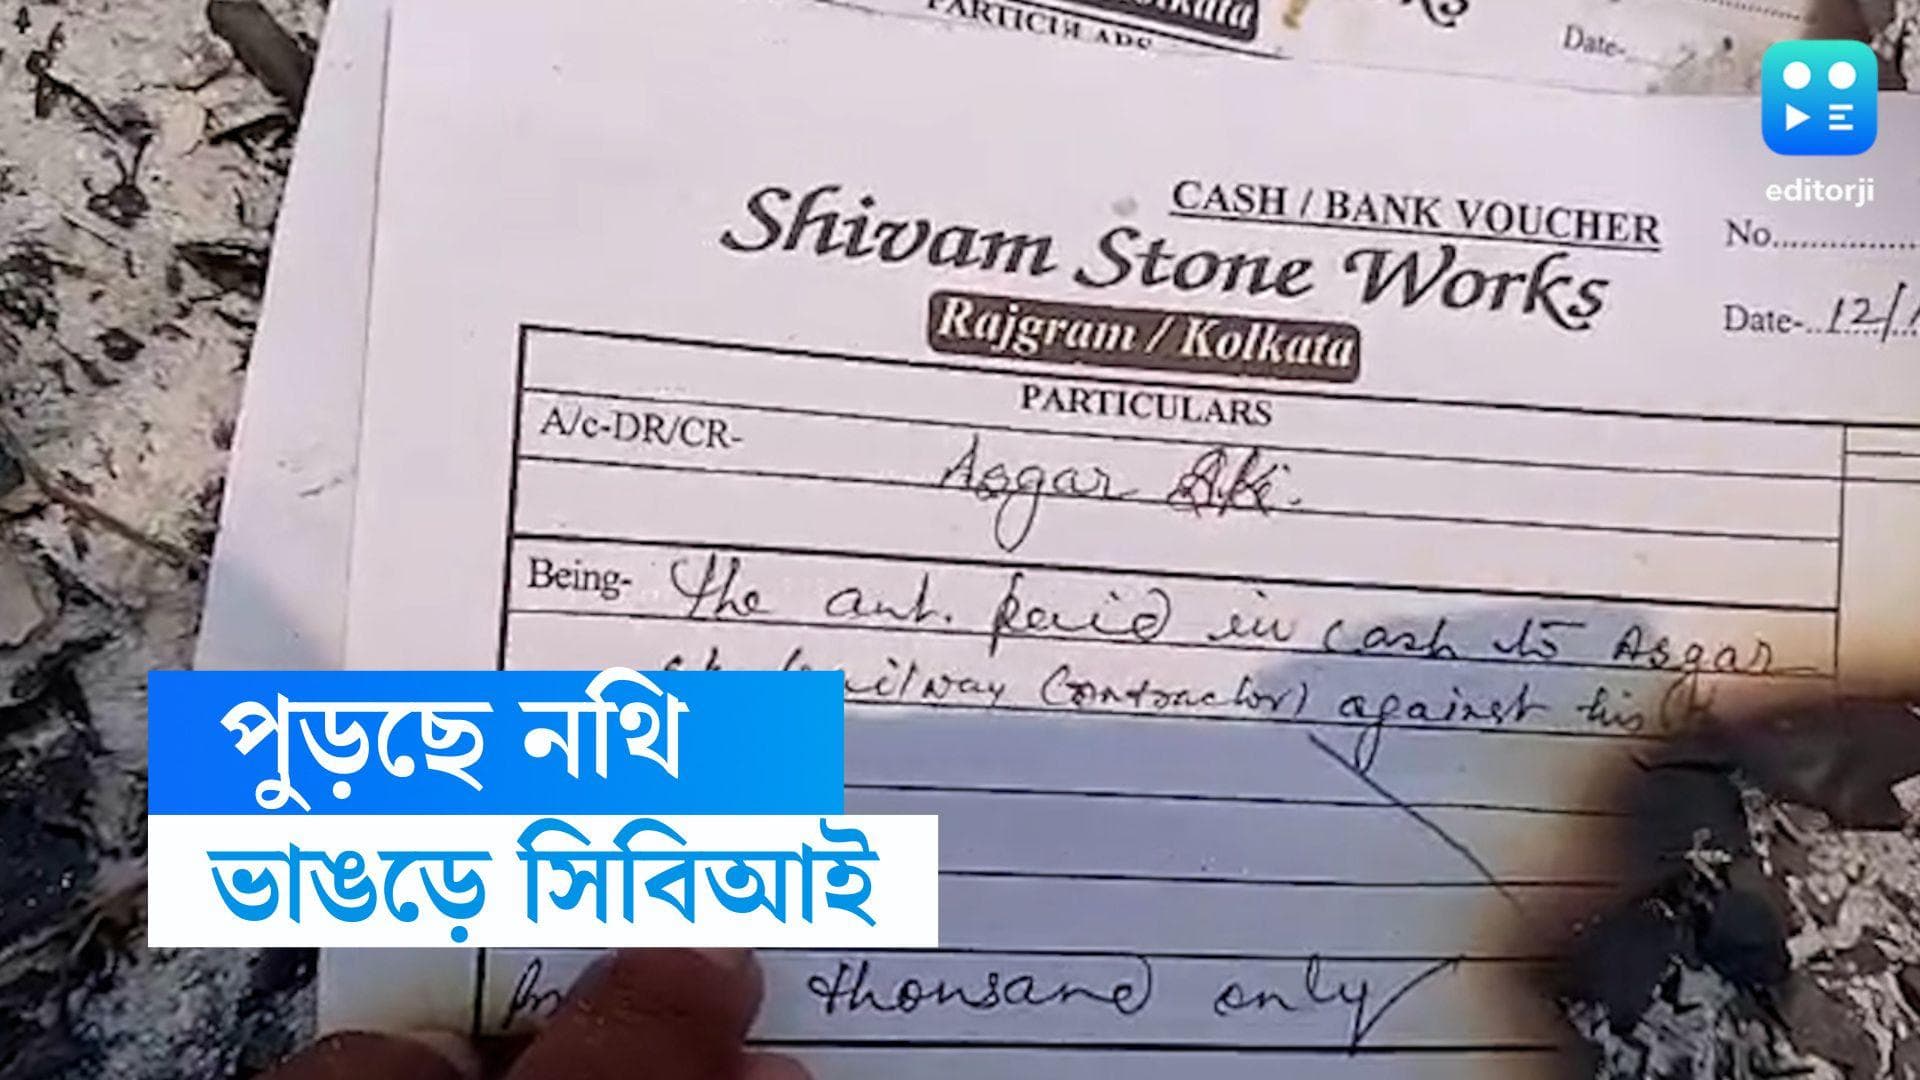 PARTICULARS
Date-
editorji
CASH / BANK VOUCHER
No.
Shivam Stone Works
Date- 12/1
Rajgram / Kolkata
PARTICULARS
A/c-DR/CR- Asgar Ali.
Being- The amt. paid in cash to Asgar
Railway Contractor) against his
পুড়ছে নথি
ভাঙড়ে সিবিআই
thousand only